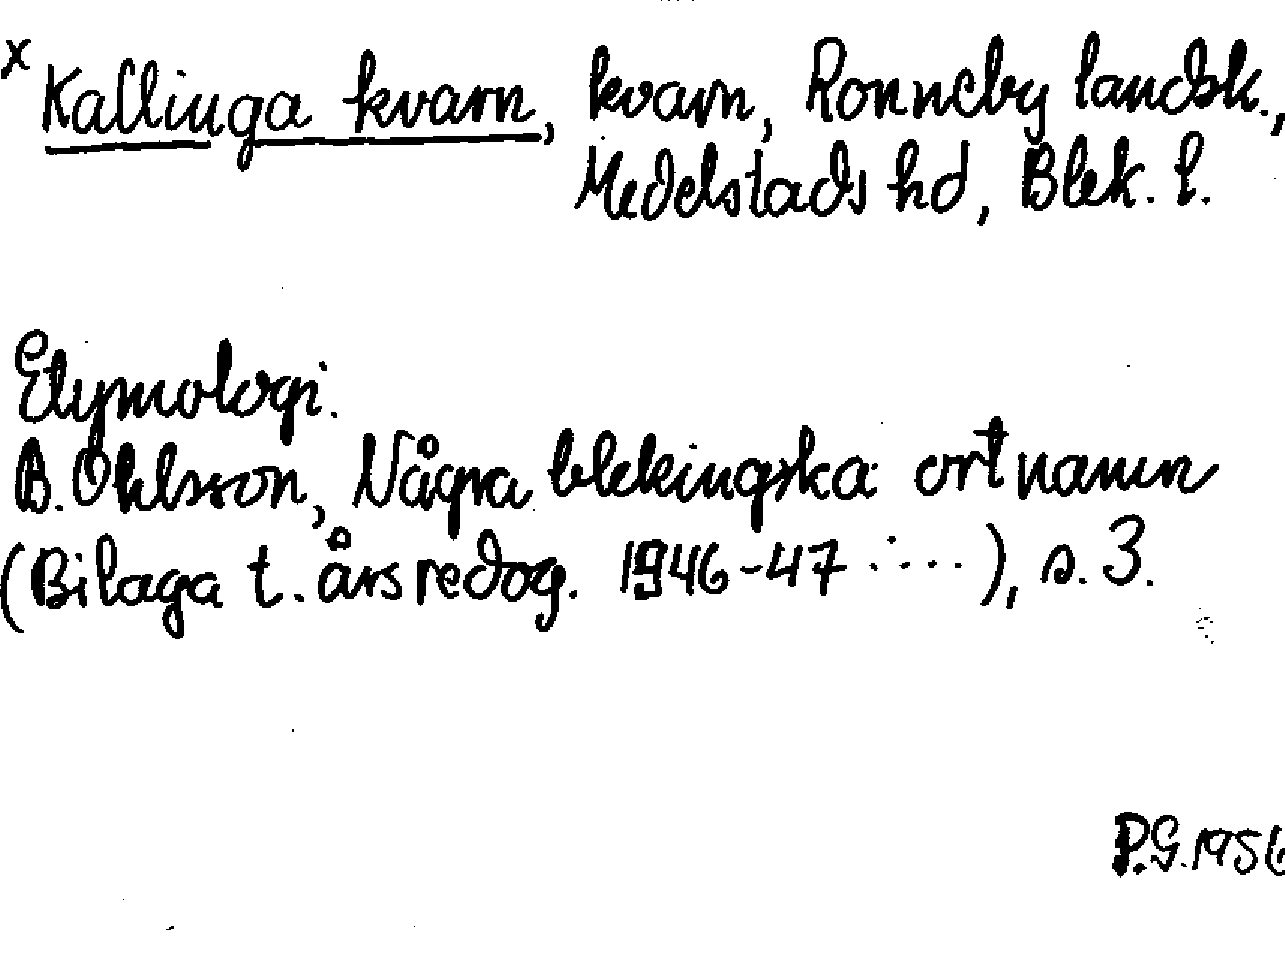 x Kallinga kvarn, kvarn, Ronneby landsk.,
Medelstads hd, Blek. l.
Etymologi.
B. Ohlsson, Några blekingska ortnamn
(Bilaga t. årsredog. 1946-47 ....), s. 3.
P.G. 1956